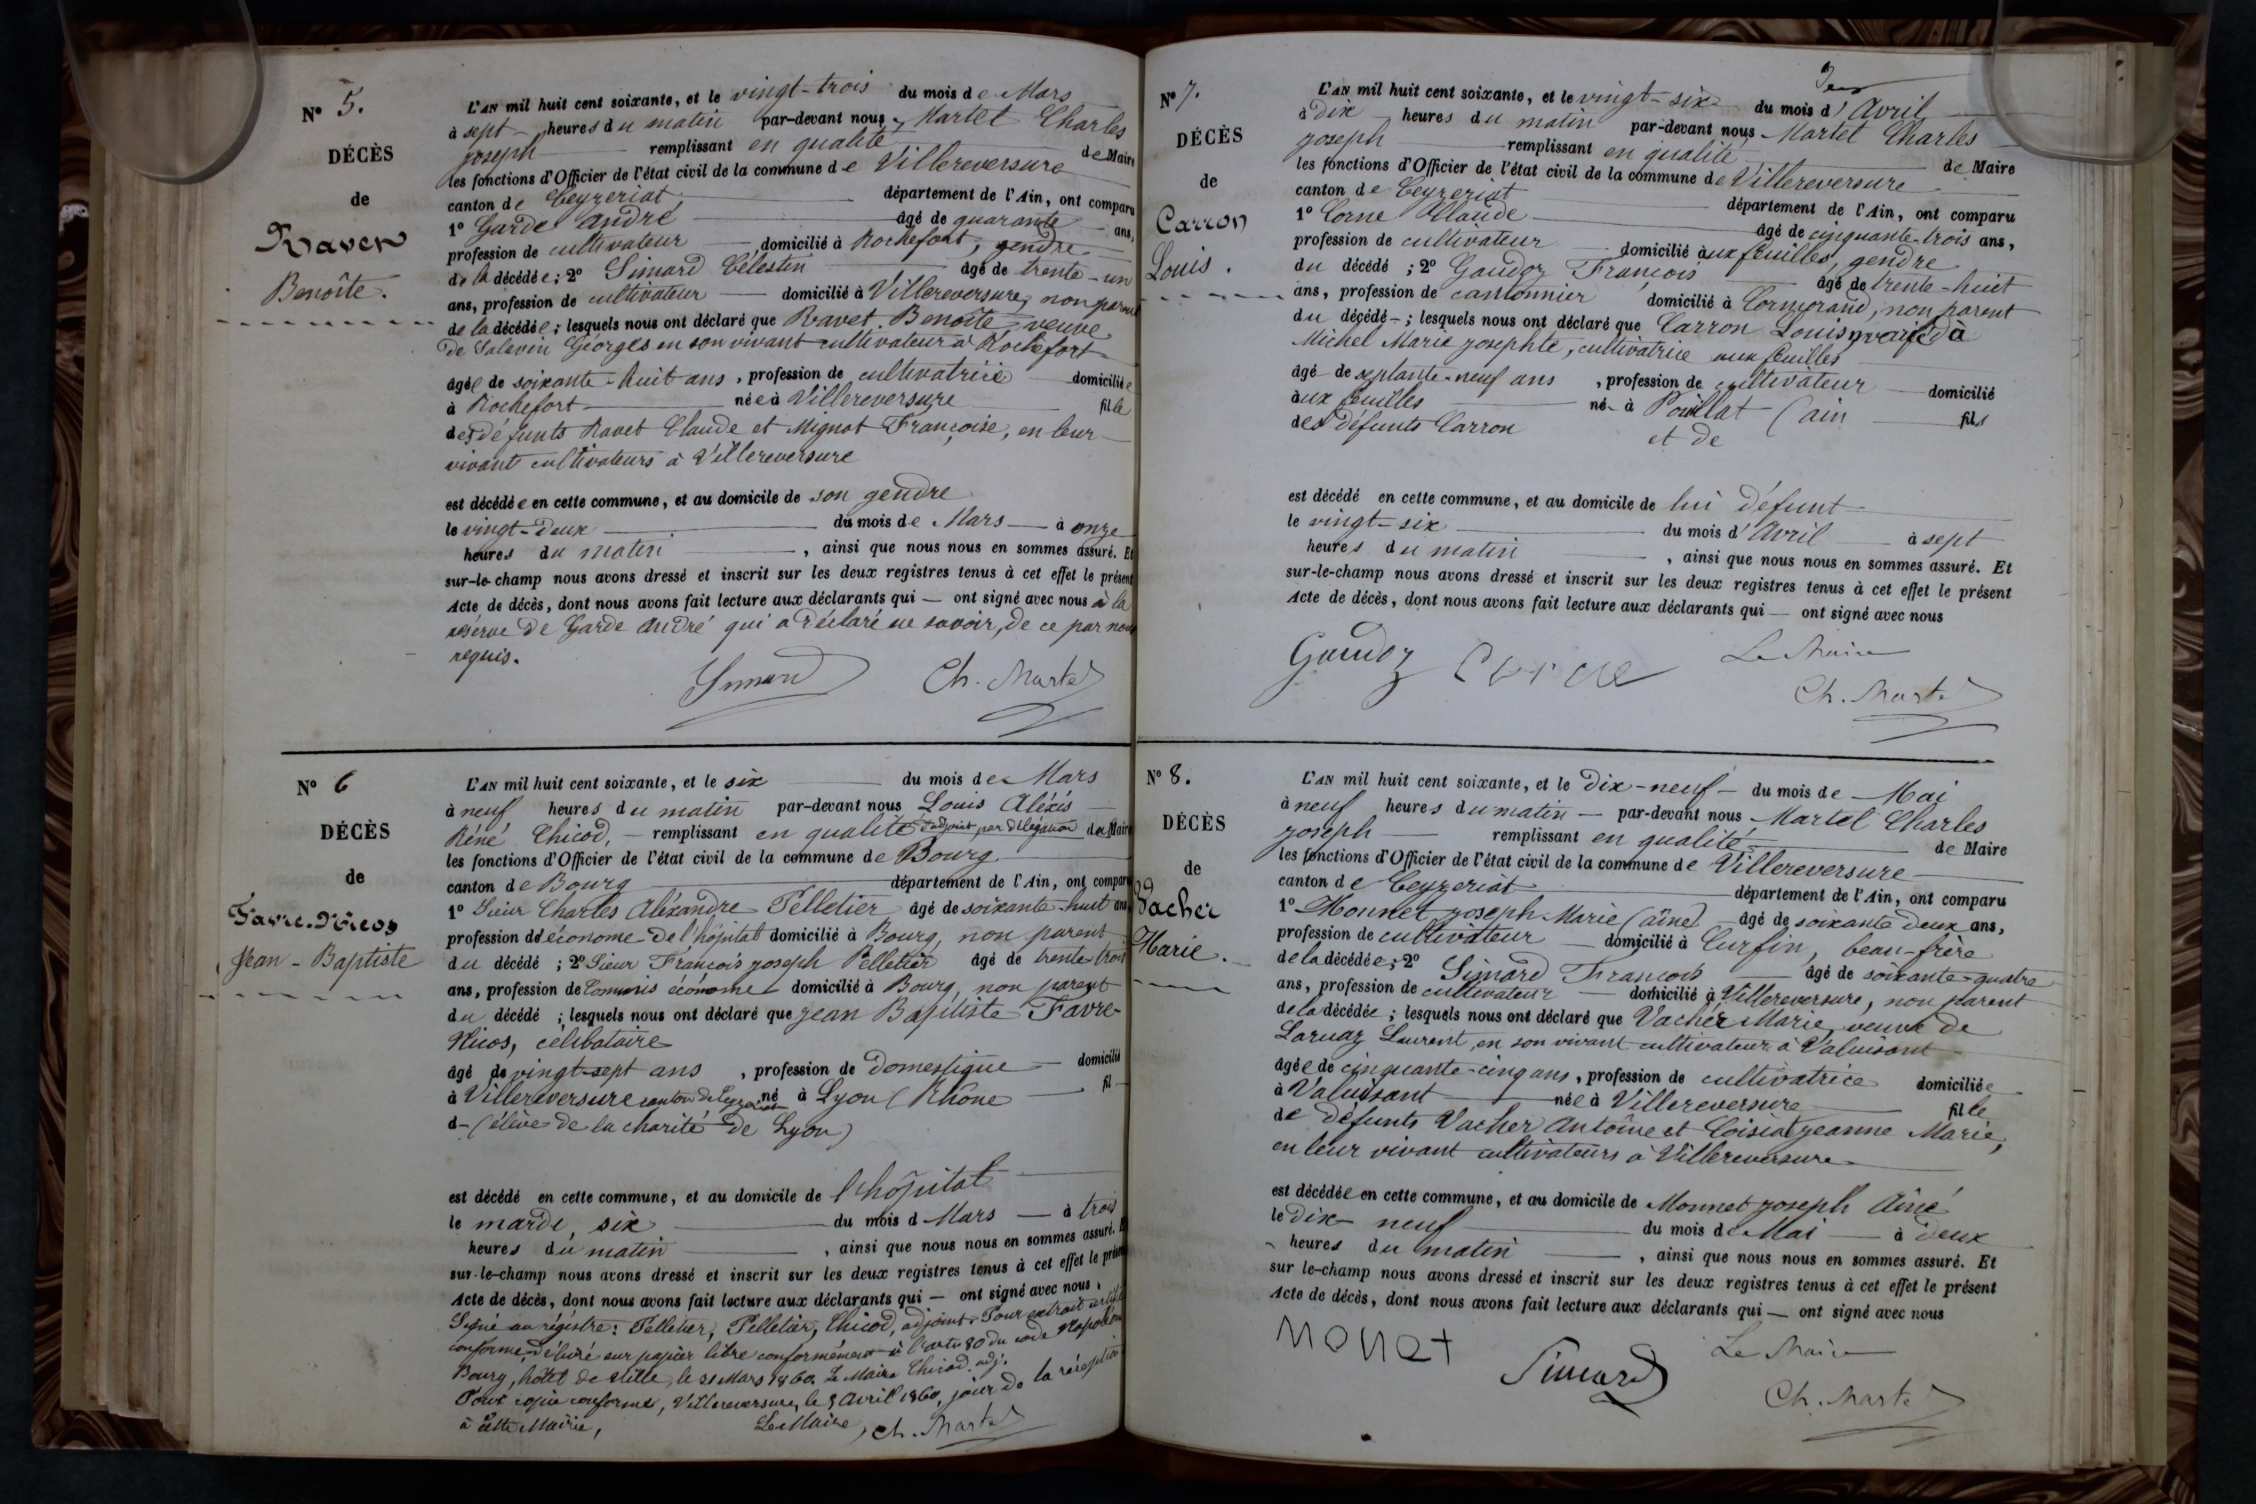 N° 5.
DÉCÈS
de
Ravet
Benoîte.
L'AN mil huit cent soixante, et le vingt-trois du mois de Mars
à sept heures du matin par-devant nous, Martel Charles
joseph remplissant en qualité de Maire
les fonctions d'Officier de l'état civil de la commune de Villereversure
canton de Ceyzeriat département de l'Ain, ont comparu
1° Garde André âgé de quarante ans,
profession de cultivateur domicilié à Rochefort, gendre
de la décédée; 2° Simard Célestin âgé de trente-un
ans, profession de cultivateur domicilié à Villereversure, non parent
de la décédée; lesquels nous ont déclaré que Ravet Benoîte, veuve
de Salavin Georges en son vivant cultivateur à Rochefort
âgée de soixante-huit ans, profession de cultivatrice domiciliée
à Rochefort née à Villereversure fille
des défunts Ravet Claude et Mignot Françoise, en leur
vivant cultivateurs à Villereversure
est décédée en cette commune, et au domicile de son gendre
le vingt-deux du mois de Mars à onze
heures du matin, ainsi que nous nous en sommes assuré. Et
sur-le-champ nous avons dressé et inscrit sur les deux registres tenus à cet effet le présent
Acte de décès, dont nous avons fait lecture aux déclarants qui — ont signé avec nous à la
réserve de Garde André qui a déclaré ne savoir, de ce par nous
requis.
Simard Ch. Martel
N° 6
DÉCÈS
de
Favre-Nicos
Jean-Baptiste
L'AN mil huit cent soixante, et le six du mois de Mars
à neuf heures du matin par-devant nous Louis Aléxis
Réné Chicod, remplissant en qualité d'adjoint par délégation de Maire
les fonctions d'Officier de l'état civil de la commune de Bourg
canton de Bourg département de l'Ain, ont comparu
1° Sieur Charles Aléxandre Pelletier âgé de soixante-huit ans
profession d'économe de l'hôpital domicilié à Bourg, non parent
du décédé; 2° Sieur François joseph Pelletier âgé de trente trois
ans, profession de Commis économe domicilié à Bourg, non parent
du décédé; lesquels nous ont déclaré que jean Baptiste Favre-
Nicos, célibataire
âgé de vingt-sept ans, profession de domestique domicilié
à Villereversure canton de Ceyzeriat né à Lyon (Rhône fil
d- (élève de la charité de Lyon)
est décédé en cette commune, et au domicile de l'hôpital
le mardi, six du mois d Mars à trois
heures du matin, ainsi que nous nous en sommes assuré. Et
sur-le-champ nous avons dressé et inscrit sur les deux registres tenus à cet effet le présent
Acte de décès, dont nous avons fait lecture aux déclarants qui — ont signé avec nous,
Signé au régistre: Pelletier, Pelletier, Chicod, adjoint. Pour extrait certifié
conforme, délivré sur papier libre conformément à l'arte 80 du code Napoléon
Bourg, hôtel de Ville, le 31 Mars 1860. Le Maire Chicod adj.
Pour copie conforme, Villereversure, le 5 Avril 1860, jour de la réception
à cette Mairie,
Le Maire, Ch. Martel
N° 7.
DÉCÈS
de
Carron
Louis.
L'AN mil huit cent soixante, et le vingt-six du mois d'Avril
à dix heures du matin par-devant nous Martel Charles
joseph remplissant en qualité de Maire
les fonctions d'Officier de l'état civil de la commune de Villereversure
canton de Ceyzeriat département de l'Ain, ont comparu
1° Corne Claude âgé de cinquante-trois ans,
profession de cultivateur domicilié aux feuilles, gendre
du décédé; 2° Gaudoz François âgé de trente-huit
ans, profession de cantonnier domicilié à Cormorand, non parent
du décédé-; lesquels nous ont déclaré que Carron Louis, marié à
Michel Marie josephte, cultivatrice aux feuilles
âgé de septante-neuf ans, profession de cultivateur domicilié
aux feuilles né à Pouillat (ain fils
des défunts Carron et de
est décédé en cette commune, et au domicile de lui défunt
le vingt-six du mois d'Avril à sept
heures du matin, ainsi que nous nous en sommes assuré. Et
sur-le-champ nous avons dressé et inscrit sur les deux registres tenus à cet effet le présent
Acte de décès, dont nous avons fait lecture aux déclarants qui — ont signé avec nous
Gaudoz Corne Le Maire
Ch. Martel
N° 8.
DÉCÈS
de
Vacher
Marie.
L'AN mil huit cent soixante, et le Dix-neuf du mois de Mai
à neuf heures du matin par-devant nous, Martel Charles
joseph remplissant en qualité de Maire
les fonctions d'Officier de l'état civil de la commune de Villereversure
canton de Ceyzeriat département de l'Ain, ont comparu
1° Monnet joseph Marie (aîné) âgé de soixante deux ans,
profession de cultivateur domicilié à Curfin, beau-frère
de la décédée; 2° Simard François âgé de soixante-quatre
ans, profession de cultivateur domicilié à Villereversure, non parent
de la décédée; lesquels nous ont déclaré que Vacher Marie, veuve de
Laruaz Laurent, en son vivant cultivateur à Valuisant
âgée de cinquante-cinq ans, profession de cultivatrice domiciliée
à Valuisant née à Villereversure fille
de défunts Vacher Antoine et Coisiat jeanne Marie,
en leur vivant cultivateurs à Villereversure
est décédée en cette commune, et au domicile de Monnet joseph Aîné
le Dix-neuf du mois de Mai à deux
heures du matin, ainsi que nous nous en sommes assuré. Et
sur le-champ nous avons dressé et inscrit sur les deux registres tenus à cet effet le présent
Acte de décès, dont nous avons fait lecture aux déclarants qui — ont signé avec nous
Monet Simard Le Maire
Ch. Martel